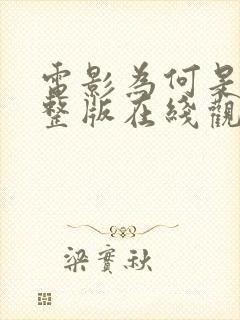 電影為何是
整版在綫觀
梁實秋